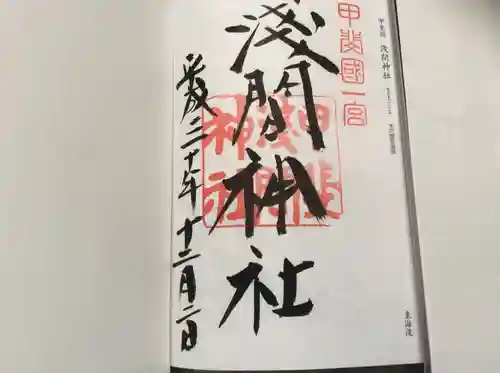 甲斐國 淺間神社
東海道
甲斐國一宮
淺間神社
甲斐
淺間
神社
平成三十年十二月二日